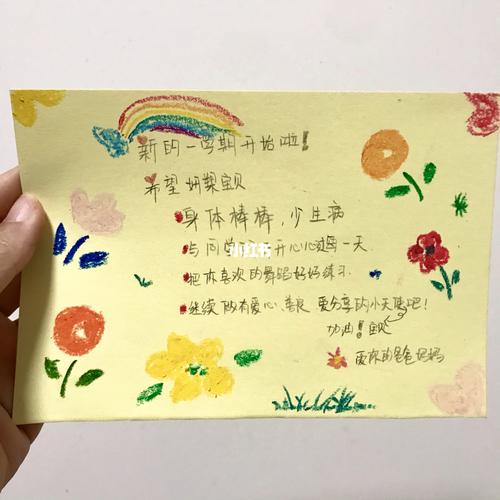 新的一学期开始啦！
希望妍槊宝贝
身体棒棒，少生病
与同学 开开心心过每一天．
小红书
把你喜欢的舞蹈好好练习．
继续做有爱心、善良 爱分享的小天使吧！
加油！宝贝
爱你的爸爸妈妈